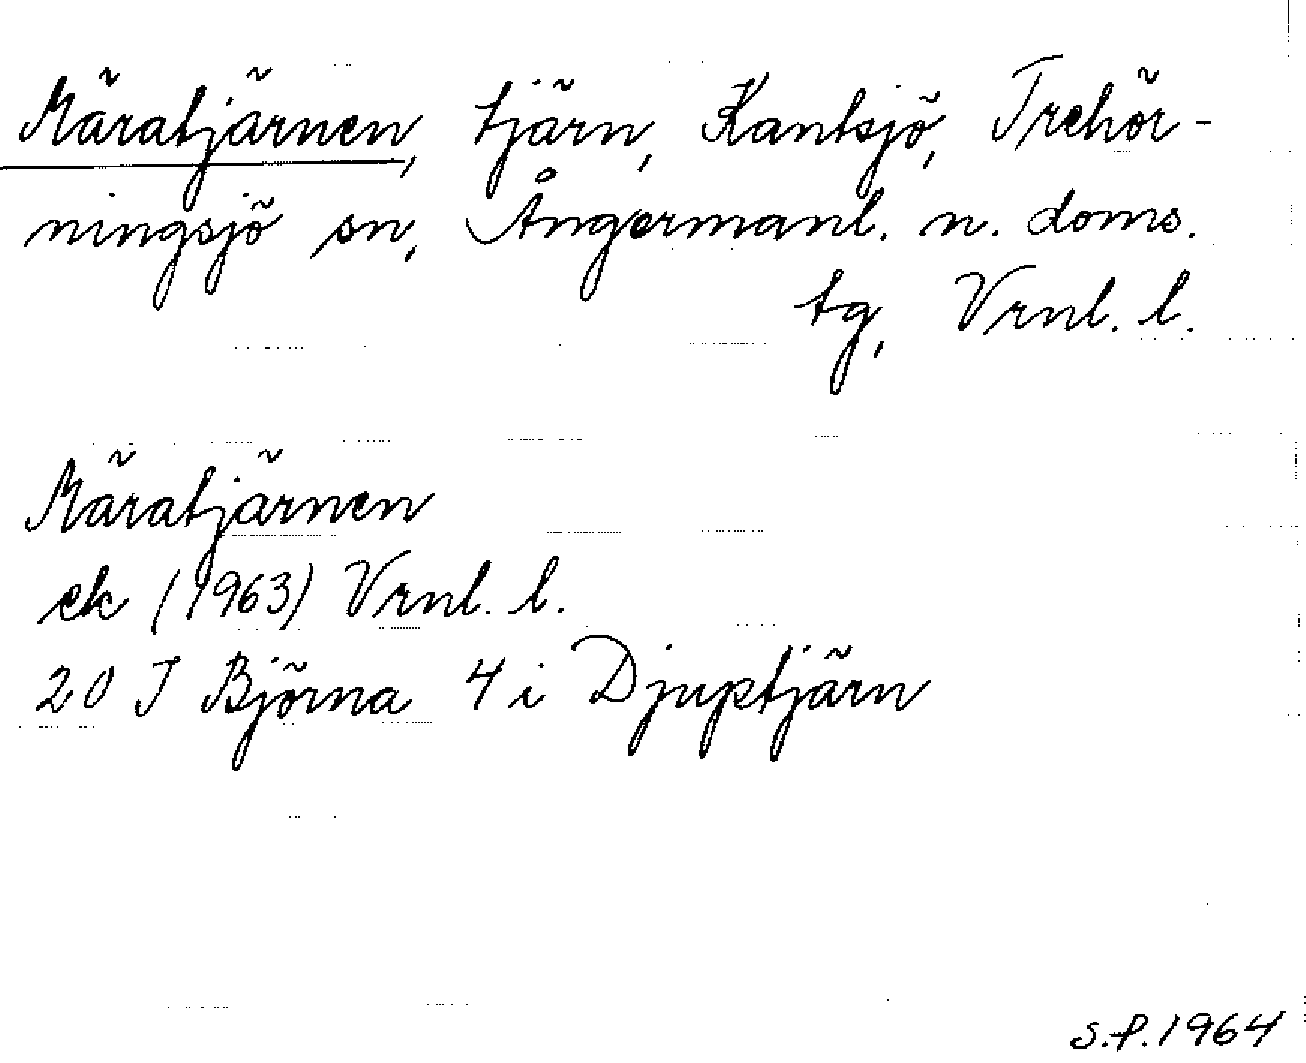 Märatjärnen, tjärn, Kantsjö, Trehör-
ningsjö sn, Ångermanl. n. doms.
tg, Vrnl. l.
Märatjärnen
ek (1963) Vrnl. l.
20 J Björna 4 i Djuptjärn
S.P. 1964